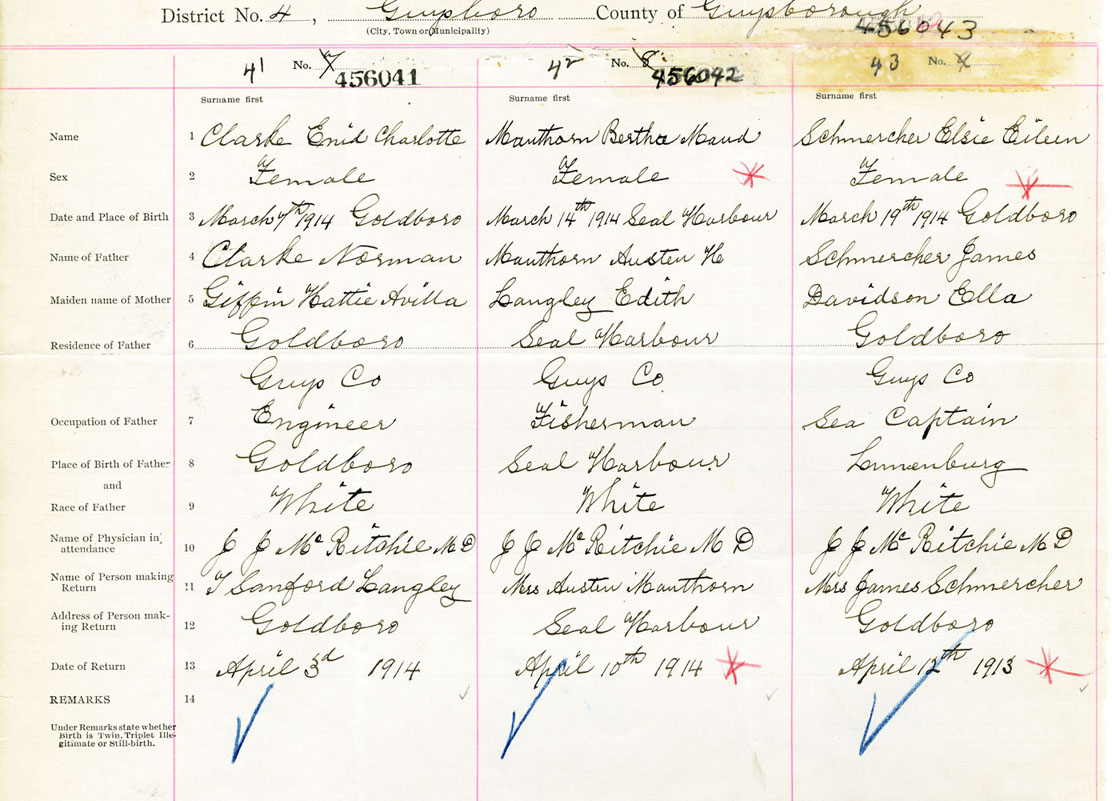 District No. 4, Guysboro County of Guysborough
(City, Town or Municipality)
456043
41 No. 7 456041 42 No. 8 456042 43 No.
Surname first Surname first Surname first
Name 1 Clarke Enid Charlotte Manthorn Bertha Maud Schmercher Elsie Eileen
Sex 2 Female Female Female
Date and Place of Birth 3 March 7th 1914 Goldboro March 14th 1914 Seal Harbour March 19th 1914 Goldboro
Name of Father 4 Clarke Norman Manthorn Austen H Schmercher James
Maiden name of Mother 5 Giffin Hattie Avilla Langley Edith Davidson Ella
Residence of Father 6 Goldboro Seal Harbour Goldboro
Guys Co Guys Co Guys Co
Occupation of Father 7 Engineer Fisherman Sea Captain
Place of Birth of Father 8 Goldboro Seal Harbour Lunenburg
and
Race of Father 9 White White White
Name of Physician in attendance 10 J J Mc Ritchie M D J J Mc Ritchie M D J J Mc Ritchie M D
Name of Person making Return 11 T Sanford Langley Mrs Austen Manthorn Mrs James Schmercher
Address of Person making Return 12 Goldboro Seal Harbour Goldboro
Date of Return 13 April 3d 1914 April 10th 1914 April 12th 1913
REMARKS 14
Under Remarks state whether
Birth is Twin, Triplet Ille-
gitimate or Still-birth.